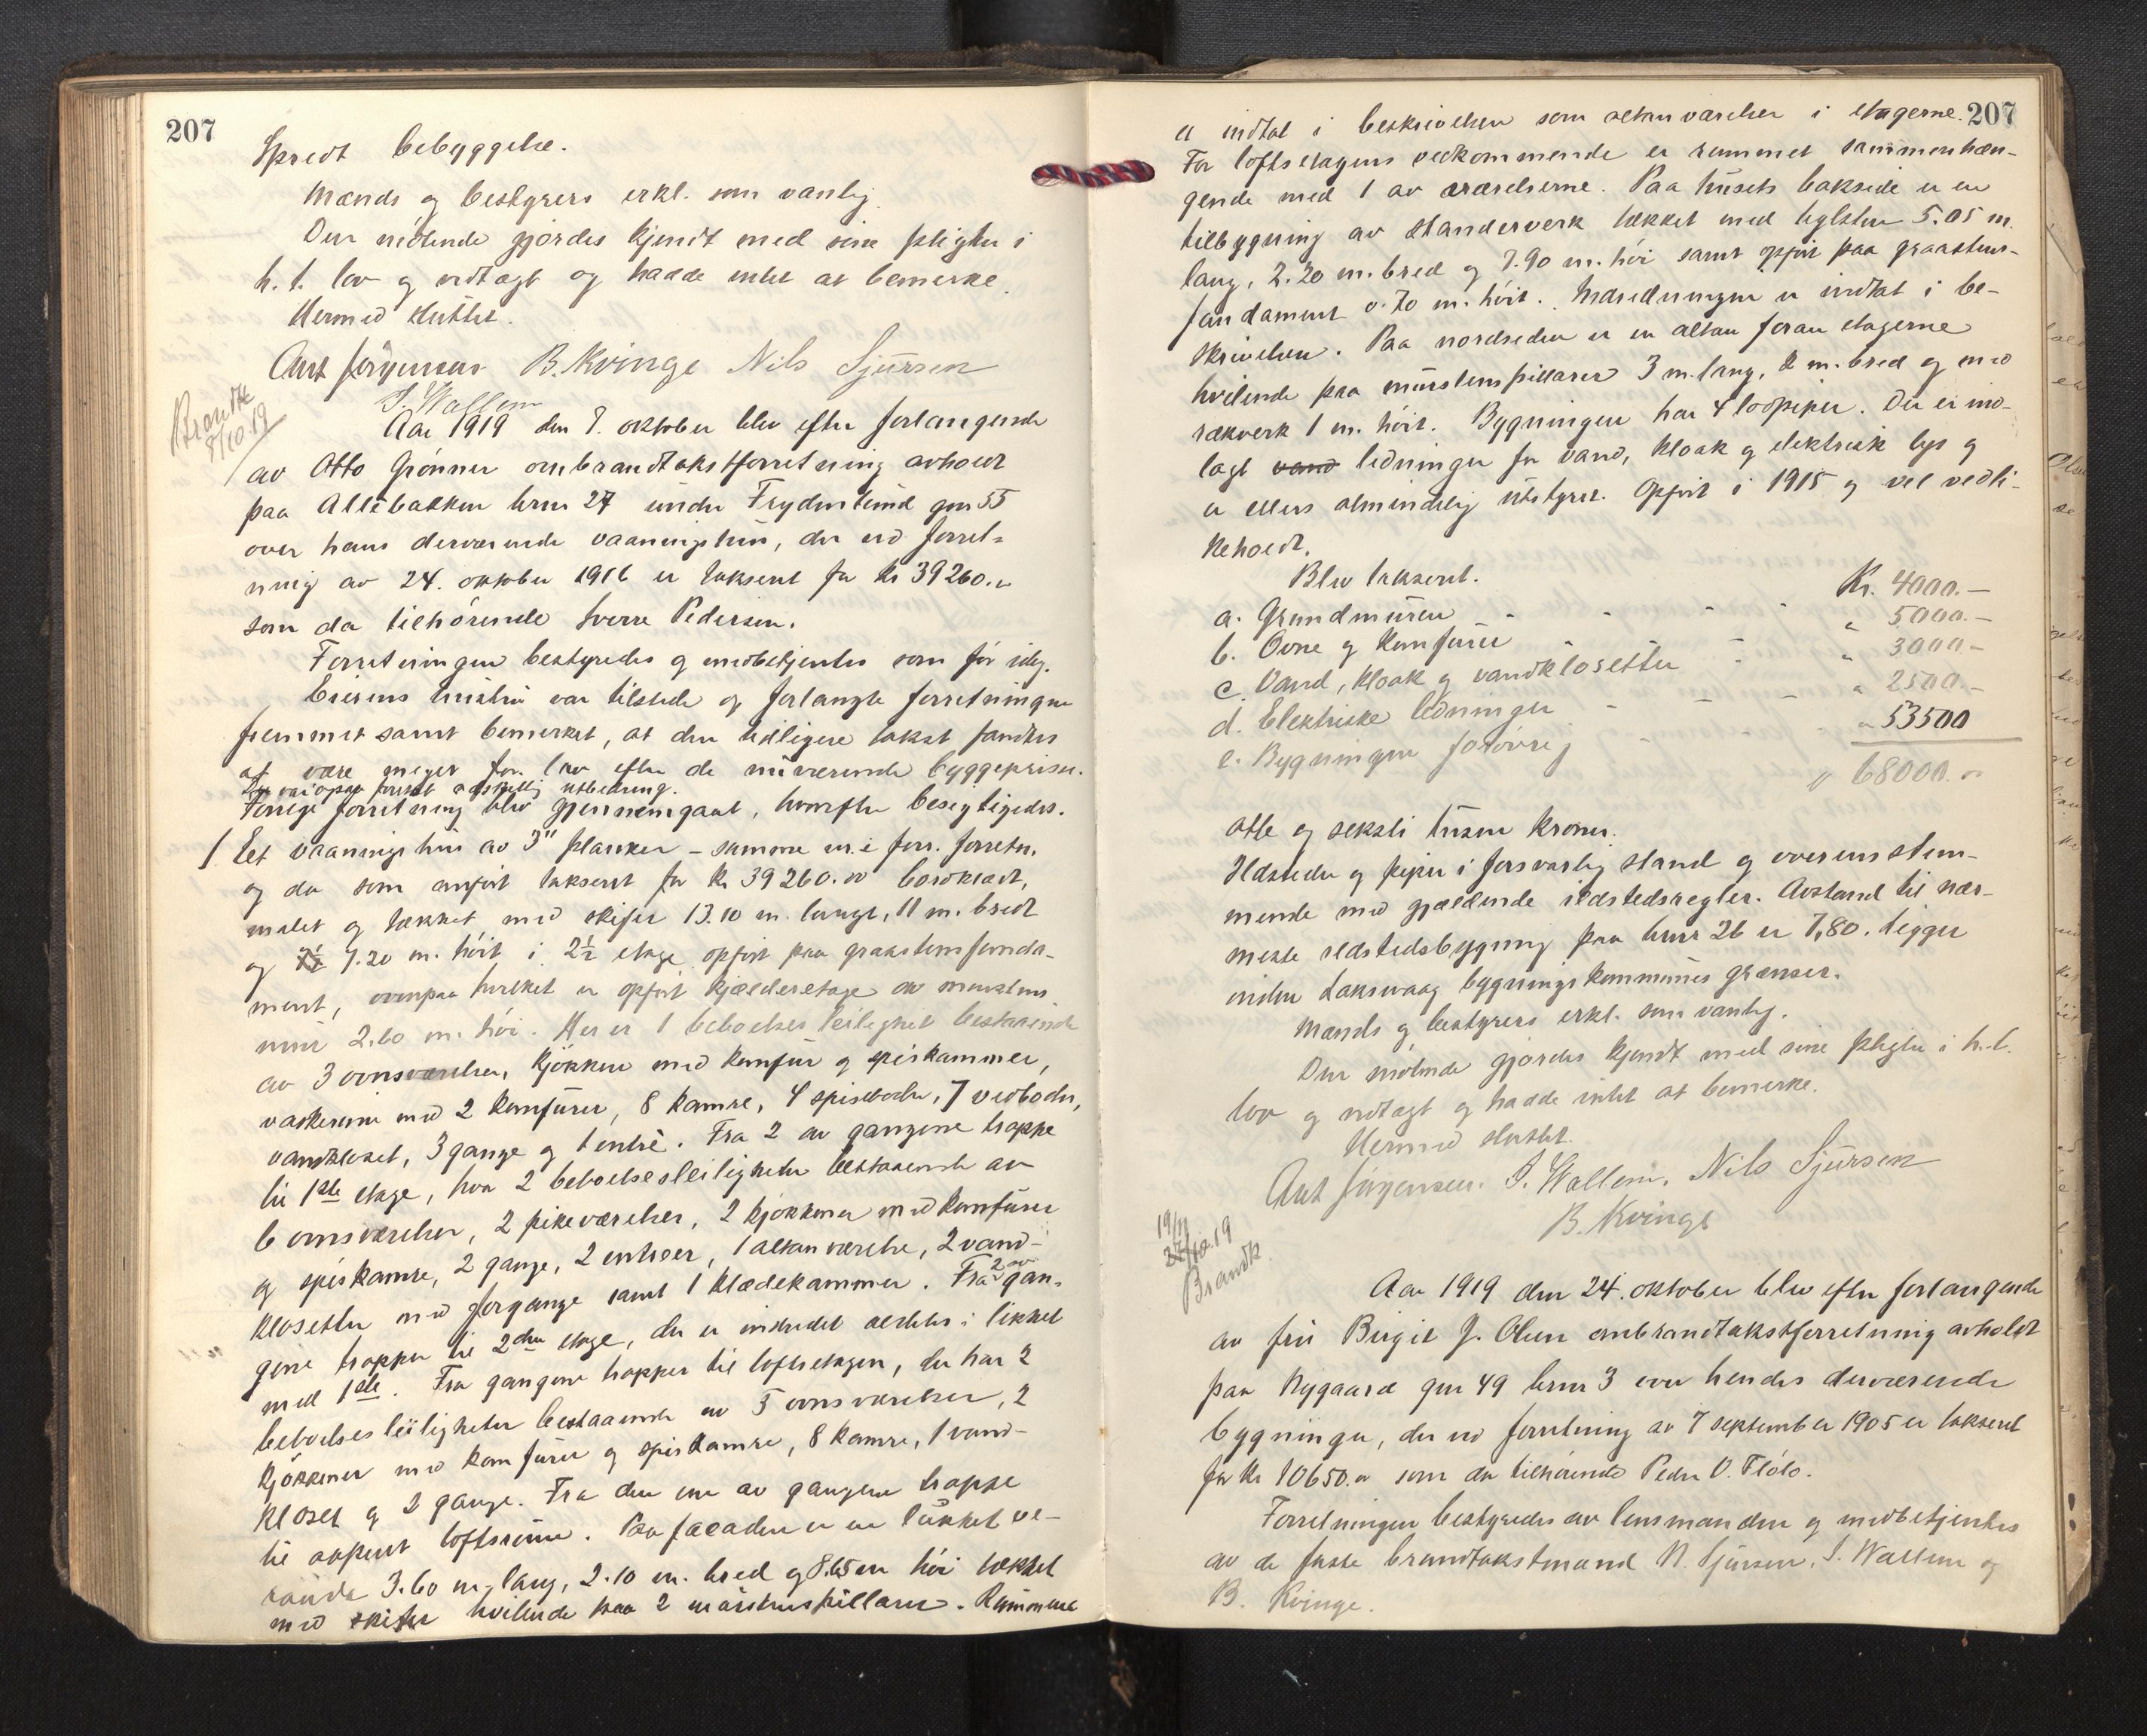 207
Spredt bebyggelse.
Mænds og bestyrers erkl. som vanlig.
Den mötende gjordes kjendt med sine pligter i
h. t. lov og vedtægt og hadde intet at bemerke.
Hermed sluttet.
Ant Jörgensen B. Kvinge Nils Sjursen
S. Wallem
Brandk
8/10.19
Aar 1919 den 7. oktober blev efter forlangende
av Otto Grönner ombrandtakstforretning avholdt
paa Allebakken brnr 27 under Frydenlund gnr 55
over hans derværende vaaningshus, der ved forret-
ning av 24. oktober 1916 er taksert for kr 39260.00
som da tilhörende Sverre Pedersen.
Forretningen bestyredes og medbetjentes som för idag.
Eierens hustru var tilstede og forlangte forretningen
fremmet samt bemerket, at den tidligere takst fandtes
at være meget for lav efter de nuværende byggepriser.
Der var ogsaa foretat adskillig utbedring.
Forrige forretning blev gjennemgaat, hvorefter besigtigedes.
1 Et vaaningshus av 3" planker - samme nr. i forr. forretn.
og da som anfört taksert for kr 39260.00 bordklædt,
malet og tækket med skifer 13.10 m. langt, 11 m. bredt
og 7.20 m. höit i 2½ etage opfört paa graastensfunda-
ment, ovenpaa hvilket er opfört kjælderetage av murstens
mur 2.60 m. höi. Her er 1 beboelsesleilighet bestaaende
av 3 ovnsværelser, kjökken med komfur og spiskammer,
vaskerum med 2 komfurer, 8 kamre, 4 spiseboder, 7 vedboder,
vandkloset, 3 gange og 1 entré. Fra 2 av gangene trappe
til 1ste etage, hvor 2 beboelsesleiligheter bestaaende av
6 ovnsværelser, 2 pikeværelser, 2 kjökkener med komfurer
og spiskamre, 2 gange, 2 entreer, 1 altanværelse, 2 vand-
klosetter med forgange samt 1 klædekammer. Fra 2 av gan-
gene trapper til 2den etage, der er indredet aldeles i likhet
med 1ste. Fra gangene trapper til loftsetagen, der har 2
beboelsesleiligheter bestaaende av 5 ovnsværelser, 2
kjökkener med komfurer og spiskamre, 8 kamre, 1 vand-
kloset og 2 gange. Fra den ene av gangene trappe
til avpent loftsrum. Paa facaden er en lukket ve-
randa 3.60 m. lang, 2.10 m. bred og 8.65 m höi tækket
med skifer hvilende paa 2 murstenspillarer. Rummene
207
er indtat i beskrivelsen som altanværelser i etagerne.
For loftsetagens vedkommende er rummet sammenhæn-
gende med 1 av værelserne. Paa husets bakside er en
tilbygning av standerverk tækket med teglsten 5.05 m.
lang, 2.20 m. bred og 7.90 m. höi samt opfört paa graastens-
fundament 0.70 m. höit. Indredningen er indtat i be-
skrivelsen. Paa nordsiden er en altan foran etagerne
hvilende paa murstenspillarer 3 m. lang, 2 m. bred og med
rækverk 1 m. höit. Bygningen har 4 löpiper. Der er ind-
lagt vand ledninger for vand, kloak og elektrisk lys og
er ellers almindelig utstyret. Opfört i 1915 og vel vedli-
keholdt.
Blev taksert.
a. Grundmuren Kr. 4000.-
b. Ovne og komfurer " 5000.-
c. Vand, kloak og vandklosetter " 3000.-
d. Elektriske ledninger " 2500.-
e. Bygningen forövrig " 53500
" 68000.00
otte og seksti tusen kroner.
Ildsteder og piper i forsvarlig stand og overensstem-
mende med gjældende ildstedsregler. Avstand til nær-
meste ildstedsbygning paa brnr 26 er 7,80. Ligger
inden Laksevaag bygningskommunes grænser.
Mænds og bestyrers erkl. som vanlig.
Den mötende gjordes kjendt med sine pligter i h. t.
lov og vedtægt og hadde intet at bemerke.
Hermed sluttet.
Ant Jörgensen. S. Wallem. Nils Sjursen
B. Kvinge
19/11
27/10.19
Brandk.
Aar 1919 den 24. oktober blev efter forlangende
av fru Birgit J. Olsen ombrandtakstforretning avholdt
paa Nygaard gnr 49 brnr 3 over hendes derværende
bygninger, der ved forretning av 7 september 1905 er taksert
for kr 10650.00 som da tilhörende Peder O. Flölo.
Forretningen bestyredes av lensmanden og medbetjentes
av de faste brandtakstmænd N. Sjursen, S. Wallem og
B. Kvinge.